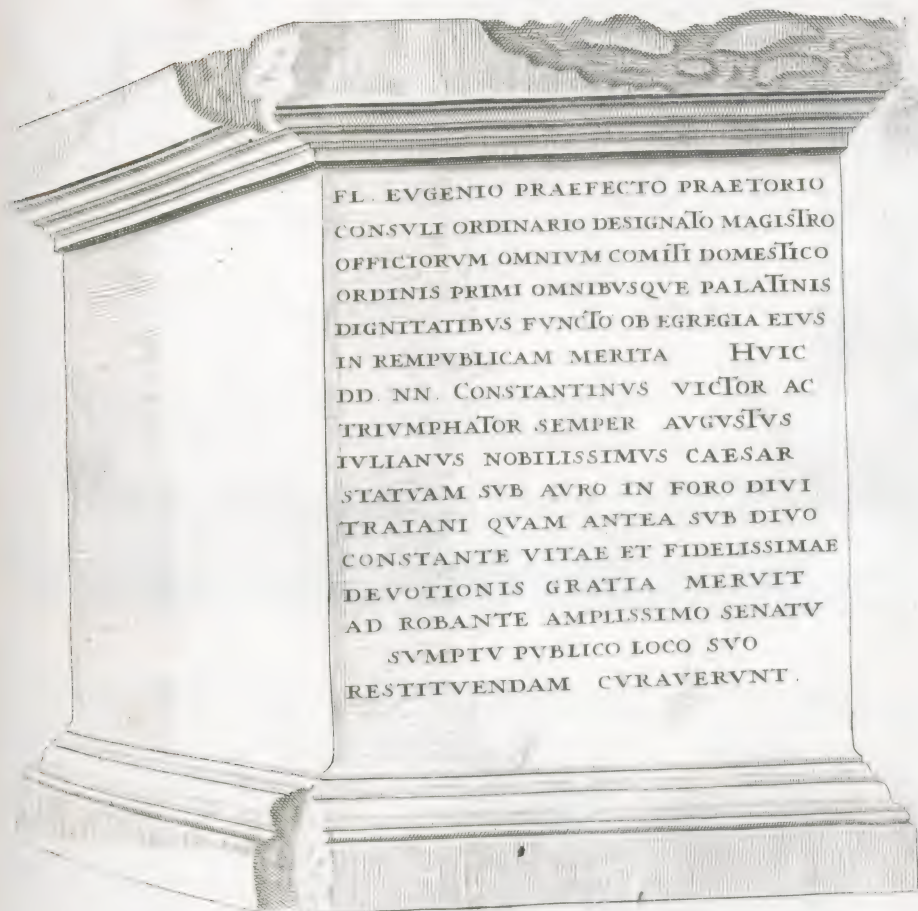 FL. EVGENIO PRAEFECTO PRAETORIO
CONSVLI ORDINARIO DESIGNATO MAGISTRO
OFFICIORVM OMNIVM COMITI DOMESTICO
ORDINIS PRIMI OMNIBVSQVE PALATINIS
DIGNITATIBVS FVNCTO OB EGREGIA EIVS
IN REMPVBLICAM MERITA HVIC
DD. NN. CONSTANTINVS VICTOR AC
TRIVMPHATOR SEMPER AVGVSTVS
IVLIANVS NOBILISSIMVS CAESAR
STATVAM SVB AVRO IN FORO DIVI
TRAIANI QVAM ANTEA SVB DIVO
CONSTANTE VITAE ET FIDELISSIMAE
DEVOTIONIS GRATIA MERVIT
AD ROBANTE AMPLISSIMO SENATV
SVMPTV PVBLICO LOCO SVO
RESTITVENDAM CVRAVERVNT.